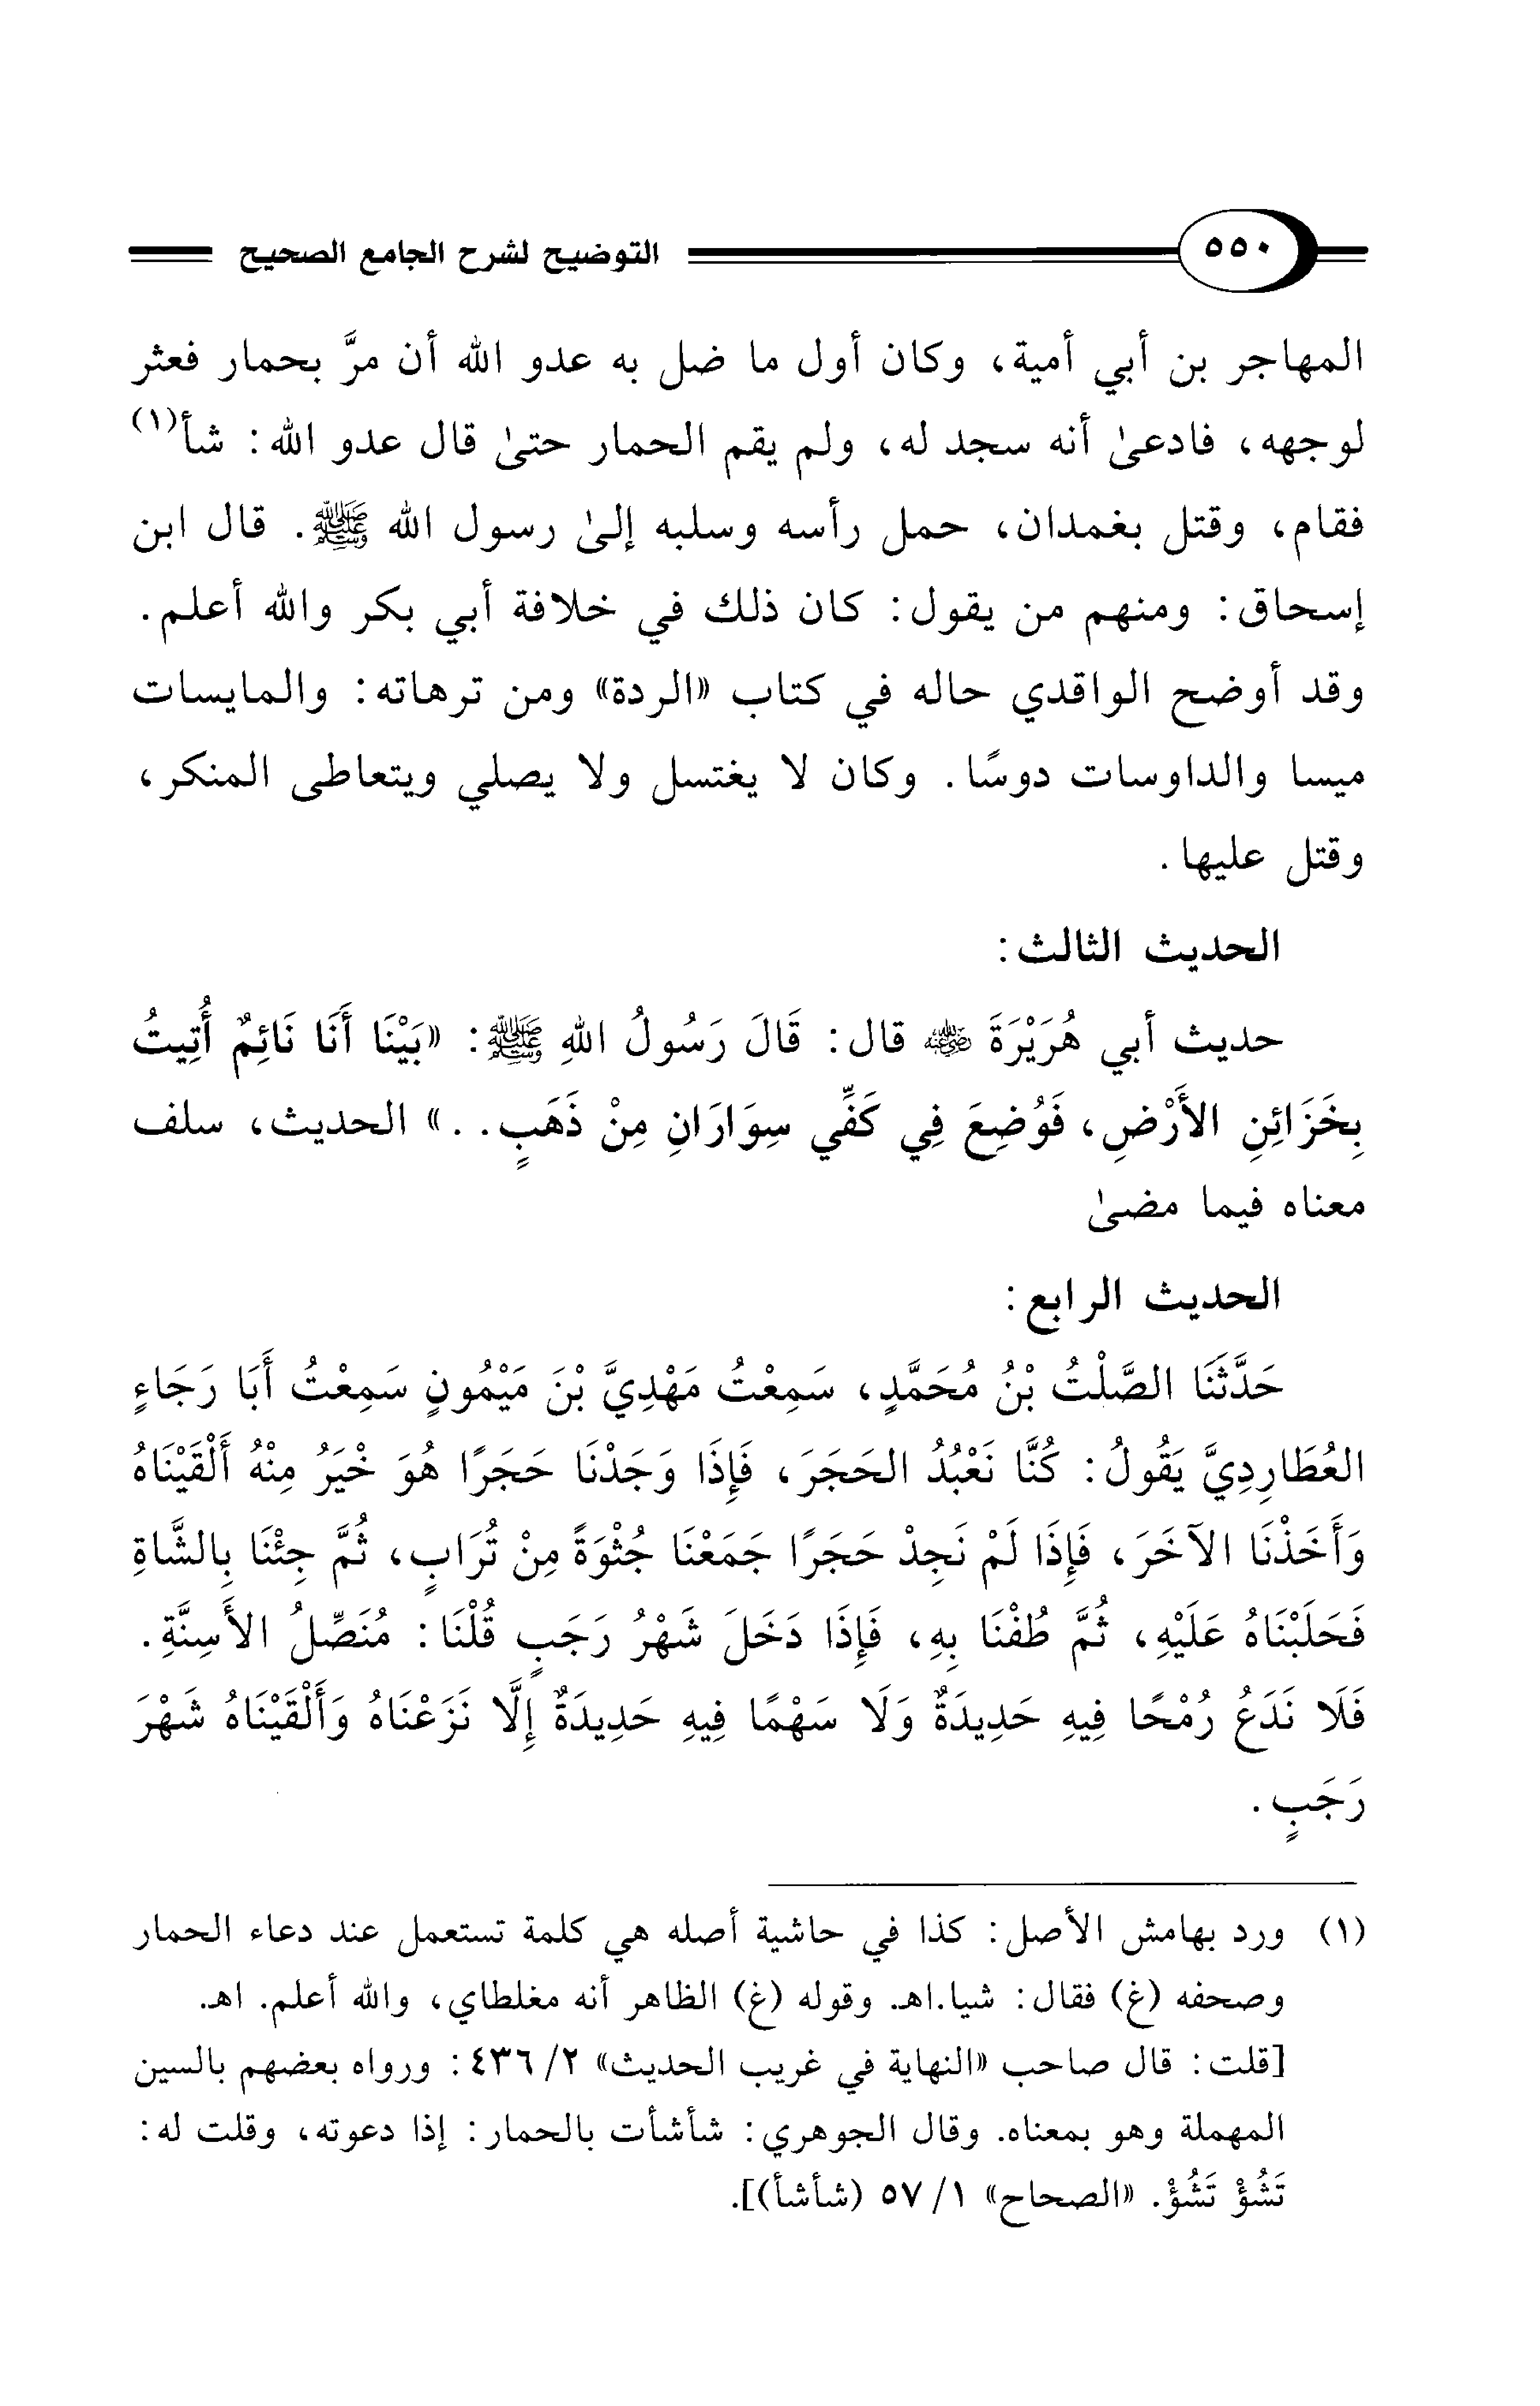 ٥٥٠ التوضيح لشرح الجامع الصحيح
المهاجر بن أبي أمية، وكان أول ما ضل به عدو الله أن مرَّ بحمار فعثر
لوجهه، فادعىٰ أنه سجد له، ولم يقم الحمار حتىٰ قال عدو الله: شأ(١)
فقام، وقتل بغمدان، حمل رأسه وسلبه إلىٰ رسول الله ﷺ. قال ابن
إسحاق: ومنهم من يقول: كان ذلك في خلافة أبي بكر والله أعلم.
وقد أوضح الواقدي حاله في كتاب «الردة» ومن ترهاته: والمايسات
ميسا والداوسات دوسًا. وكان لا يغتسل ولا يصلي ويتعاطى المنكر،
وقتل عليها.
الحديث الثالث:
حديث أبي هُرَيْرَةَ رضي الله عنه قال: قَالَ رَسُولُ اللهِ ﷺ: «بَيْنَا أَنَا نَائِمٌ أُتِيتُ
بِخَزَائِنِ الأَرْضِ، فَوُضِعَ فِي كَفِّي سِوَارَانِ مِنْ ذَهَبٍ..» الحديث، سلف
معناه فيما مضىٰ
الحديث الرابع:
حَدَّثَنَا الصَّلْتُ بْنُ مُحَمَّدٍ، سَمِعْتُ مَهْدِيَّ بْنَ مَيْمُونٍ سَمِعْتُ أَبَا رَجَاءٍ
العُطَارِدِيَّ يَقُولُ: كُنَّا نَعْبُدُ الحَجَرَ، فَإِذَا وَجَدْنَا حَجَرًا هُوَ خْيَرُ مِنْهُ أَلْقَيْنَاهُ
وَأَخَذْنَا الآخَرَ، فَإِذَا لَمْ نَجِدْ حَجَرًا جَمَعْنَا جُثْوَةً مِنْ تُرَابٍ، ثُمَّ جِئْنَا بِالشَّاةِ
فَحَلَبْنَاهُ عَلَيْهِ، ثُمَّ طُفْنَا بِهِ، فَإِذَا دَخَلَ شَهْرُ رَجَبٍ قُلْنَا: مُنَصِّلُ الأَسِنَّةِ.
فَلَا نَدَعُ رُمْحًا فِيهِ حَدِيدَةٌ وَلَا سَهْمًا فِيهِ حَدِيدَةٌ إِلَّا نَزَعْنَاهُ وَأَلْقَيْنَاهُ شَهْرَ
رَجَبٍ.
(١) ورد بهامش الأصل: كذا في حاشية أصله هي كلمة تستعمل عند دعاء الحمار
وصحفه (غ) فقال: شيا.اهـ. وقوله (غ) الظاهر أنه مغلطاي، والله أعلم. اهـ.
[قلت: قال صاحب «النهاية في غريب الحديث» ٢/ ٤٣٦: ورواه بعضهم بالسين
المهملة وهو بمعناه. وقال الجوهري: شأشأت بالحمار: إذا دعوته، وقلت له:
تَشُؤْ تَشُؤْ. «الصحاح» ١/ ٥٧ (شأشأ)].